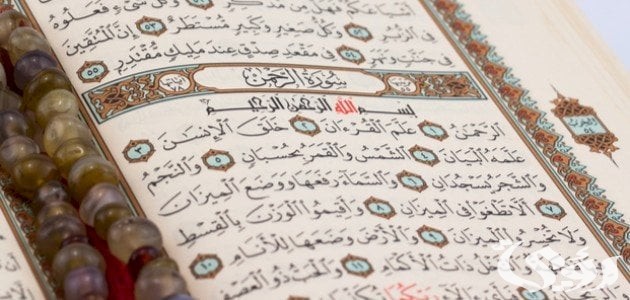 أَشْيَاعَكُمْ فَهَلْ مِن مُّدَّكِرٍ ٥١ وَكُلُّ شَيْءٍ فَعَلُوهُ
فِي الزُّبُرِ ٥٢ وَكُلُّ صَغِيرٍ وَكَبِيرٍ مُّسْتَطَرٌ ٥٣ إِنَّ الْمُتَّقِينَ
فِي جَنَّٰتٍ وَنَهَرٍ ٥٤ فِي مَقْعَدِ صِدْقٍ عِندَ مَلِيكٍ مُّقْتَدِرٍ ٥٥
سُورَةُ الرَّحْمَٰن
بِسْمِ اللَّهِ الرَّحْمَٰنِ الرَّحِيمِ
الرَّحْمَٰنُ ١ عَلَّمَ الْقُرْءَانَ ٢ خَلَقَ الْإِنسَٰنَ ٣
عَلَّمَهُ الْبَيَانَ ٤ الشَّمْسُ وَالْقَمَرُ بِحُسْبَانٍ ٥ وَالنَّجْمُ
وَالشَّجَرُ يَسْجُدَانِ ٦ وَالسَّمَاءَ رَفَعَهَا وَوَضَعَ الْمِيزَانَ ٧
أَلَّا تَطْغَوْا فِي الْمِيزَانِ ٨ وَأَقِيمُوا الْوَزْنَ بِالْقِسْطِ
وَلَا تُخْسِرُوا الْمِيزَانَ ٩ وَالْأَرْضَ وَضَعَهَا لِلْأَنَامِ ١٠
وَالنَّخْلُ ذَاتُ الْأَكْمَامِ ١١ وَالْحَبُّ ذُو الْعَصْفِ